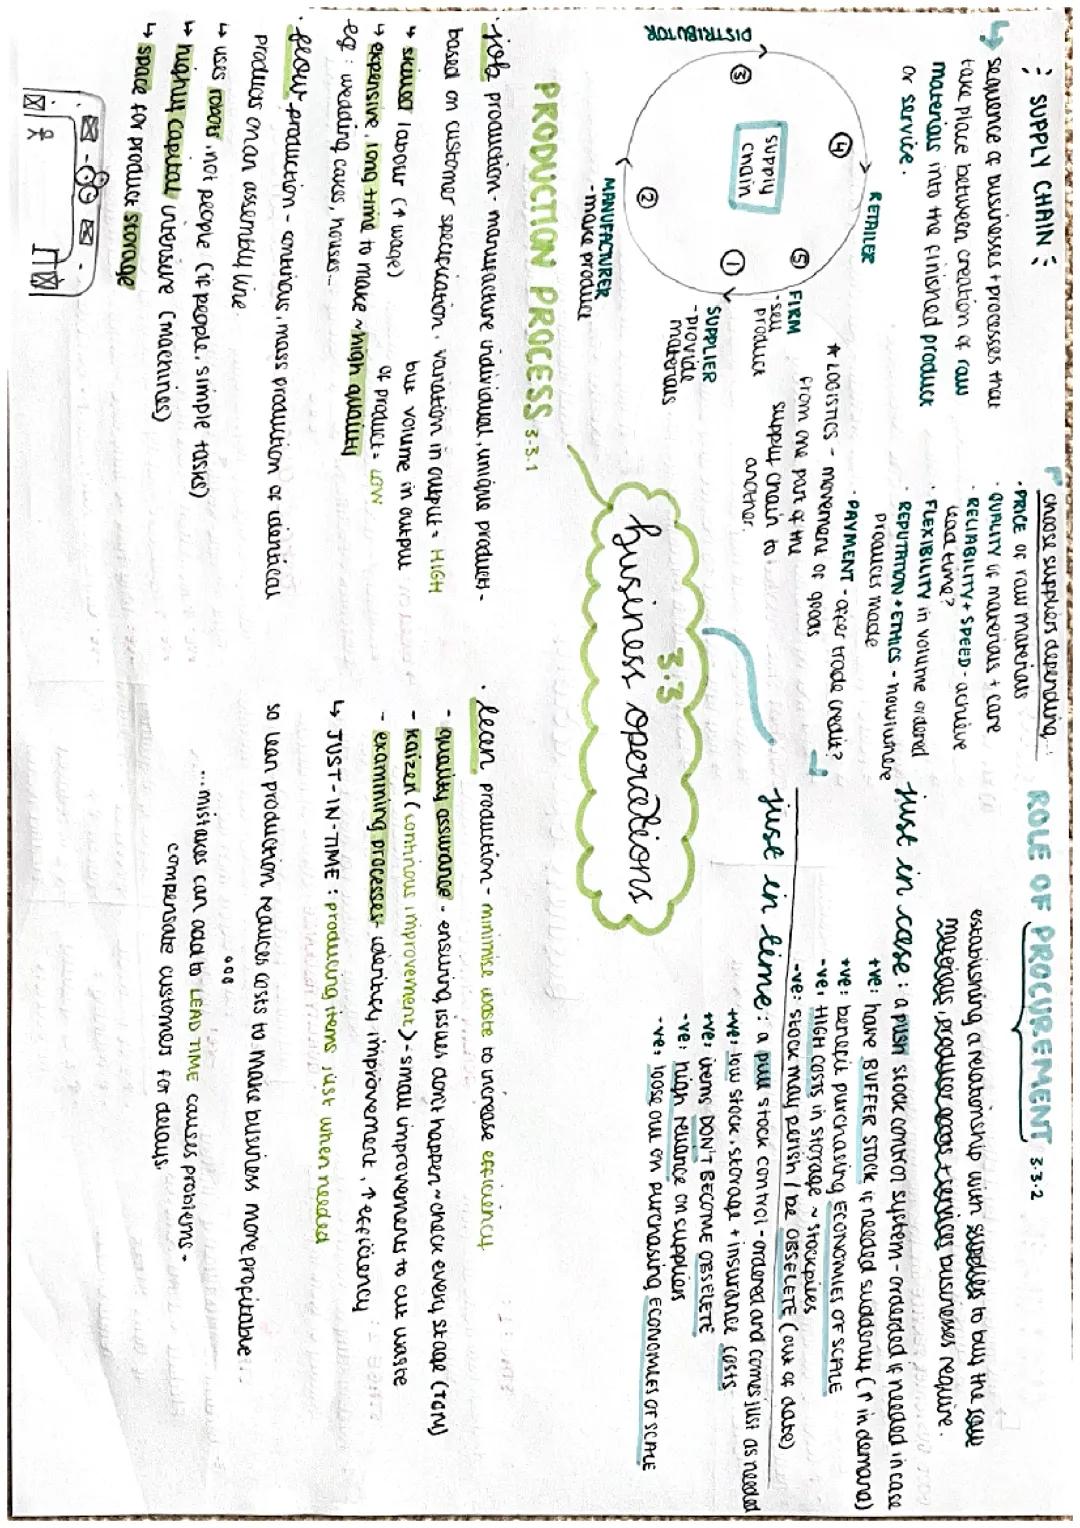 : SUPPLY CHAIN :
↳ sequence of businesses + processes that
take place between creation of raw
materials into the finished product
or service.
RETAILER
④
⑤
FIRM
- sell
product
supply
chain
③
DISTRIBUTOR
①
SUPPLIER
- provide
materials
②
MANUFACTURER
- make product
* LOGISTICS - movement of goods
from one part of the
supply chain to
another.
choose suppliers depending:
· PRICE of raw materials
· QUALITY of materials + care
· RELIABILITY + SPEED - achieve
lead time?
· FLEXIBILITY in volume ordered
· REPUTATION + ETHICS - how/where
products made
· PAYMENT - offer trade credit?
ROLE OF PROCUREMENT 3.3.2
establishing a relationship with supplies to buy the raw
materials, producer goods + services businesses require.
just in case : a push stock control system - orderded if needed in case
+ve: have BUFFER STOCK if needed suddenly (↑ in demand)
+ve: benefit purchasing ECONOMIES OF SCALE
-ve: HIGH COSTS in storage ~ stockpiles
-ve: stock may perish / be OBSELETE (out of date)
just in time : a pull stock control - ordered and comes just as needed
+ve: low stock, storage + insurance costs
+ve: items DON'T BECOME OBSELETE
-ve: high reliance on suppliers
-ve: loose out on purchasing ECONOMIES OF SCALE
3.3
business operations
PRODUCTION PROCESS 3.3.1
· job production - manufacture individual, unique products -
based on customer specification. variation in output = HIGH
↳ skilled labour (↑ wage)
but volume in output
of product = LOW
↳ expensive, long time to make ~ high quality
eg: wedding cakes, houses..
· flow production - continous, mass production of identical
products on an assembly line.
↳ uses robots, not people (if people, simple tasks)
↳ highly capital intensive (machines)
↳ space for product storage
· lean production - minimise waste to increase efficiency
- quality assurance - ensuring issues don't happen ~ check every stage (TQM)
- kaizen (continous improvement) - small improvements to cut waste
- examining processes - identify improvement, ↑ efficiency
↳ JUST-IN-TIME : producing items just when needed
so lean production reduces costs to make business more profitable...
... mistakes can add to LEAD TIME causes problems -
compensate customers for delays.